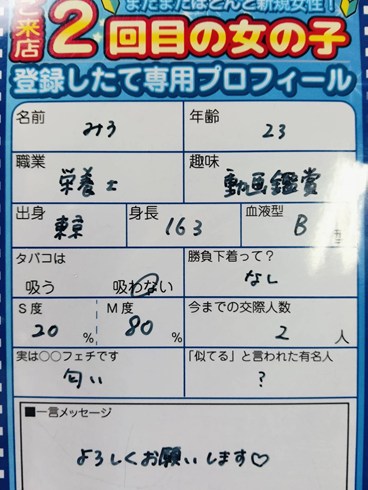 まだまだほとんど新規女性!
ご来店
2回目の女の子
登録したて専用プロフィール
名前 みう 年齢 23
職業 栄養士 趣味 動画鑑賞
出身 東京 身長 163 血液型 B 型
タバコは 吸う 吸わない 勝負下着って? なし
S度 20% M度 80% 今までの交際人数 2人
実は○○フェチです 匂い 「似てる」と言われた有名人 ?
■一言メッセージ
よろしくお願いします♡